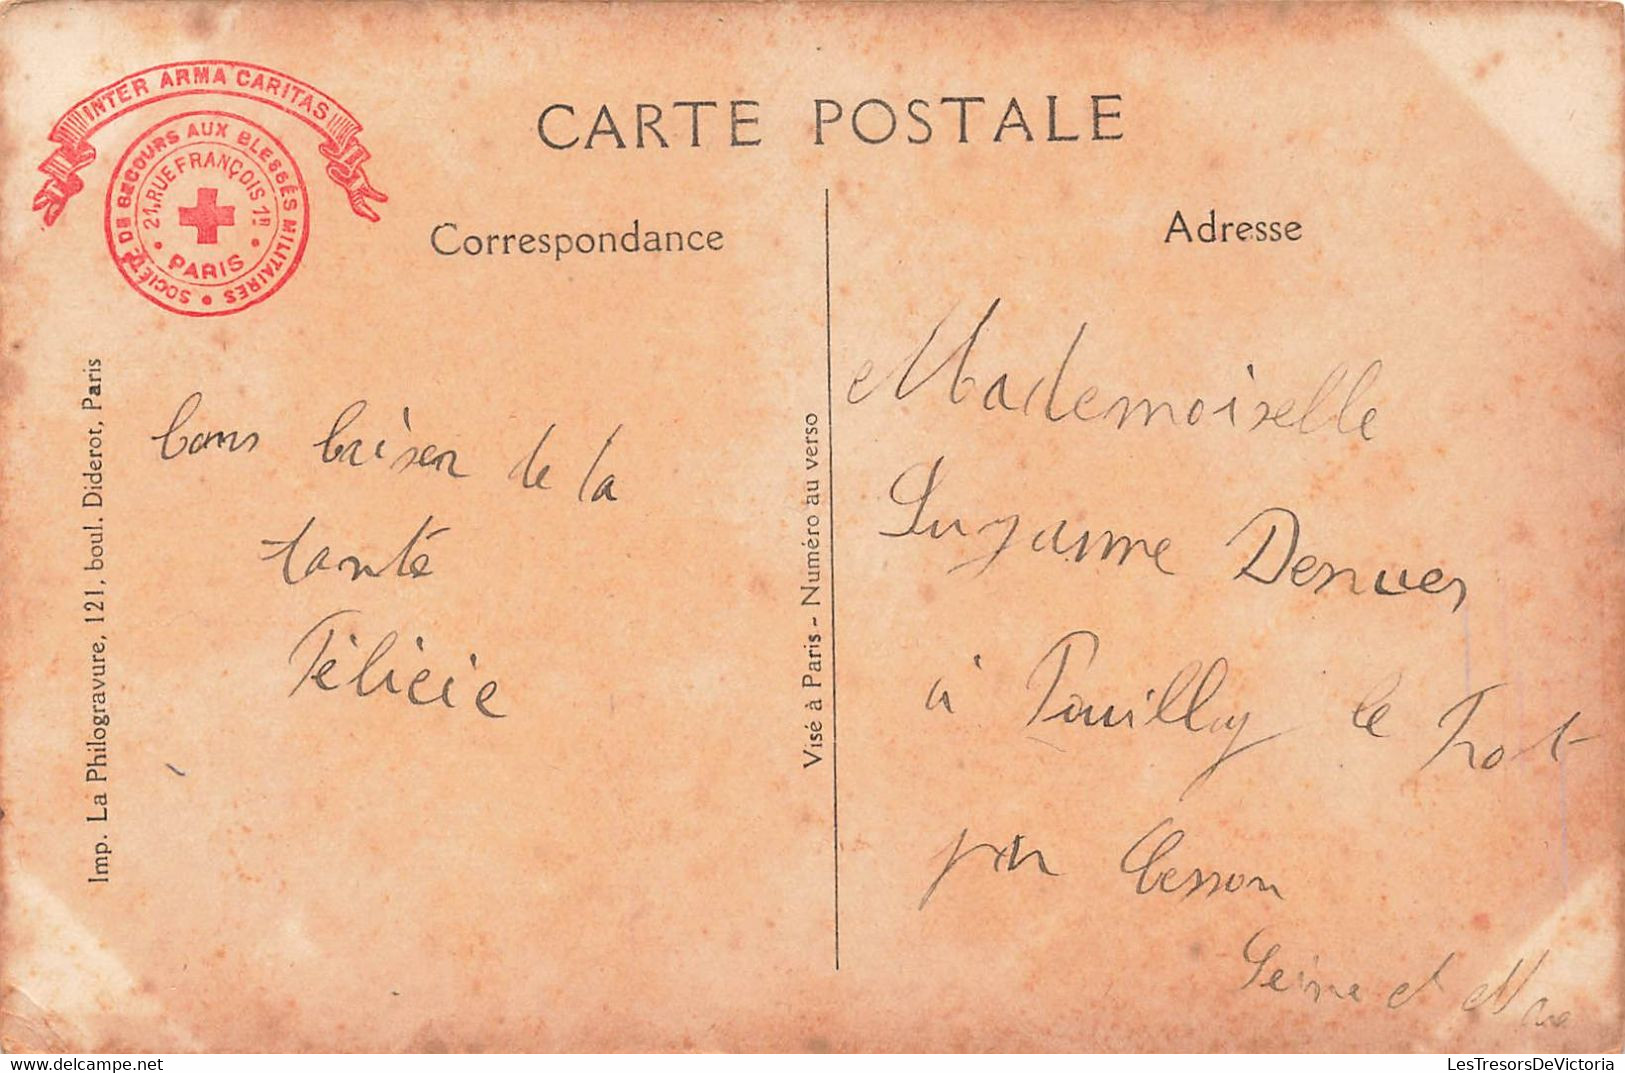 INTER ARMA CARITAS
SOCIÉTÉ DE SECOURS AUX BLESSÉS MILITAIRES
21, RUE FRANÇOIS 1R
PARIS
CARTE POSTALE
Correspondance
Adresse
Imp. La Philogravure, 121, boul. Diderot, Paris
Visé à Paris - Numéro au verso
bons baiser de la
tante
Félicie
Mademoiselle
Suzanne Denver
à Pouilly le Fort
par Cesson
Seine et Marne
LesTresorsDeVictoria